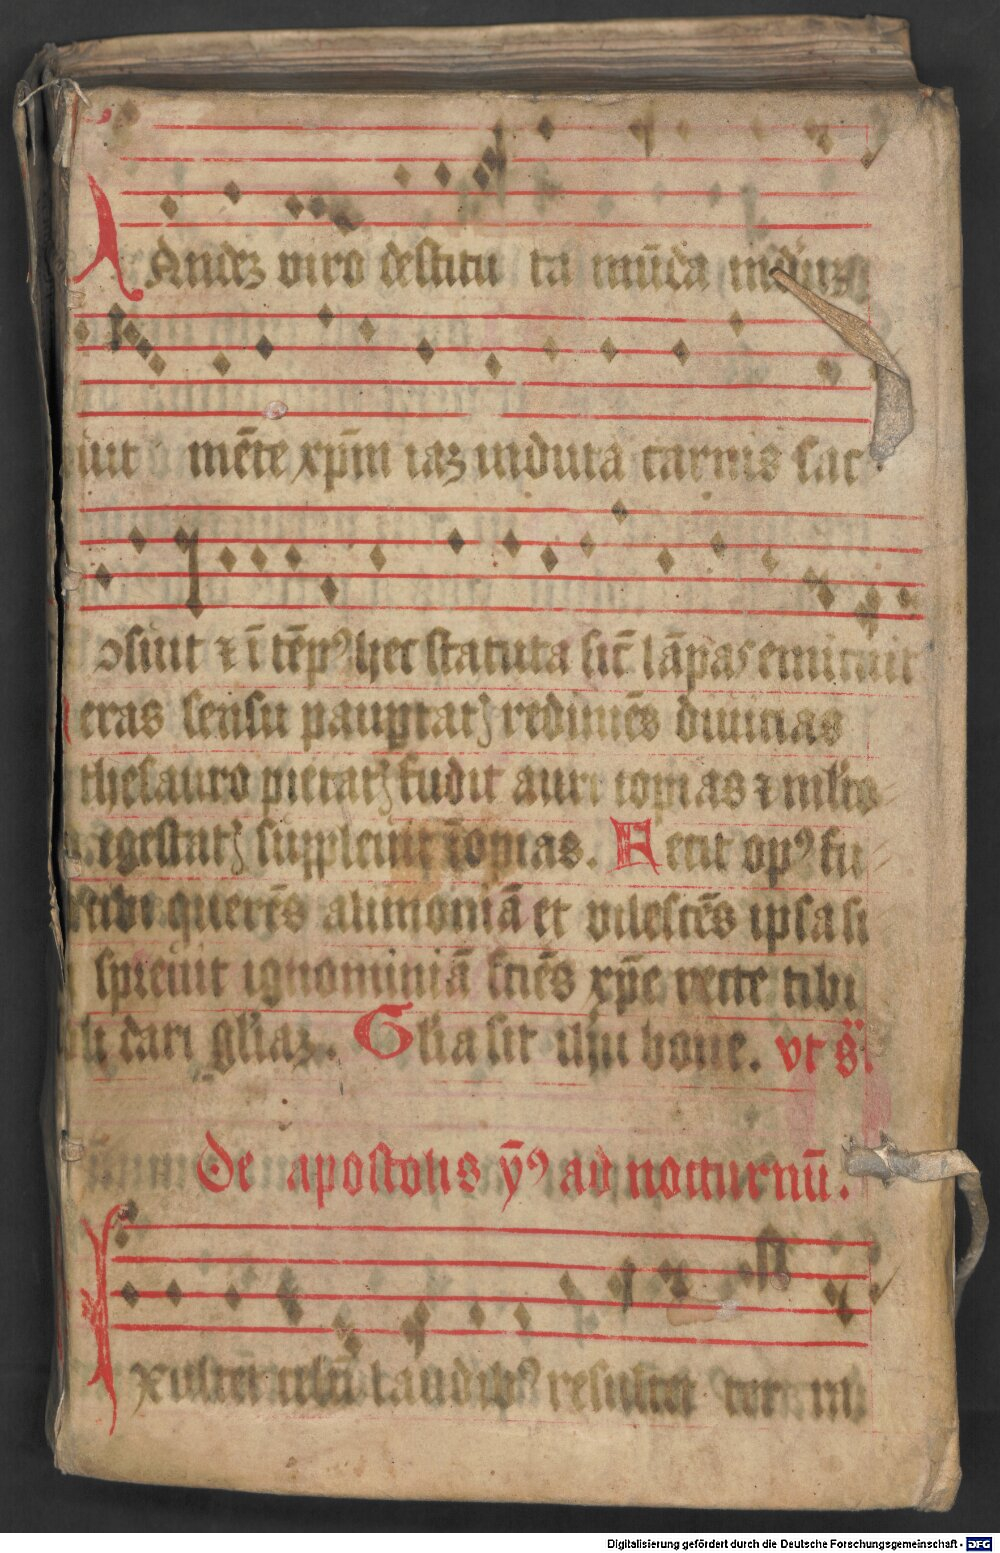 Tandez viro destitu ta mūda
iuit mēte xp̄m iaz induta carnis sac
ɔsuit ⁊ ī tēpꝰ hec statuta sic̄ lāpas emicuit
eras sensu paupṭatꝫ redimēs diuicias
thesauro pietatꝫ fudit auri copias ⁊ mlt̄o
egestatꝫ suppleuit īopias. Fecit opꝰ su
sibi querēs alimoniā et vilescēs ipsa si
spreuit ignominiā sciēs xp̄e recte tibi
oli dari gl̄iaz. Gl̄ia sit ih̄u bone. vt sͣ
De apostolis ẏꝰ ad nocturnū.
Exultet celū laudibꝰ resultet terra
Digitalisierung gefördert durch die Deutsche Forschungsgemeinschaft - DFG